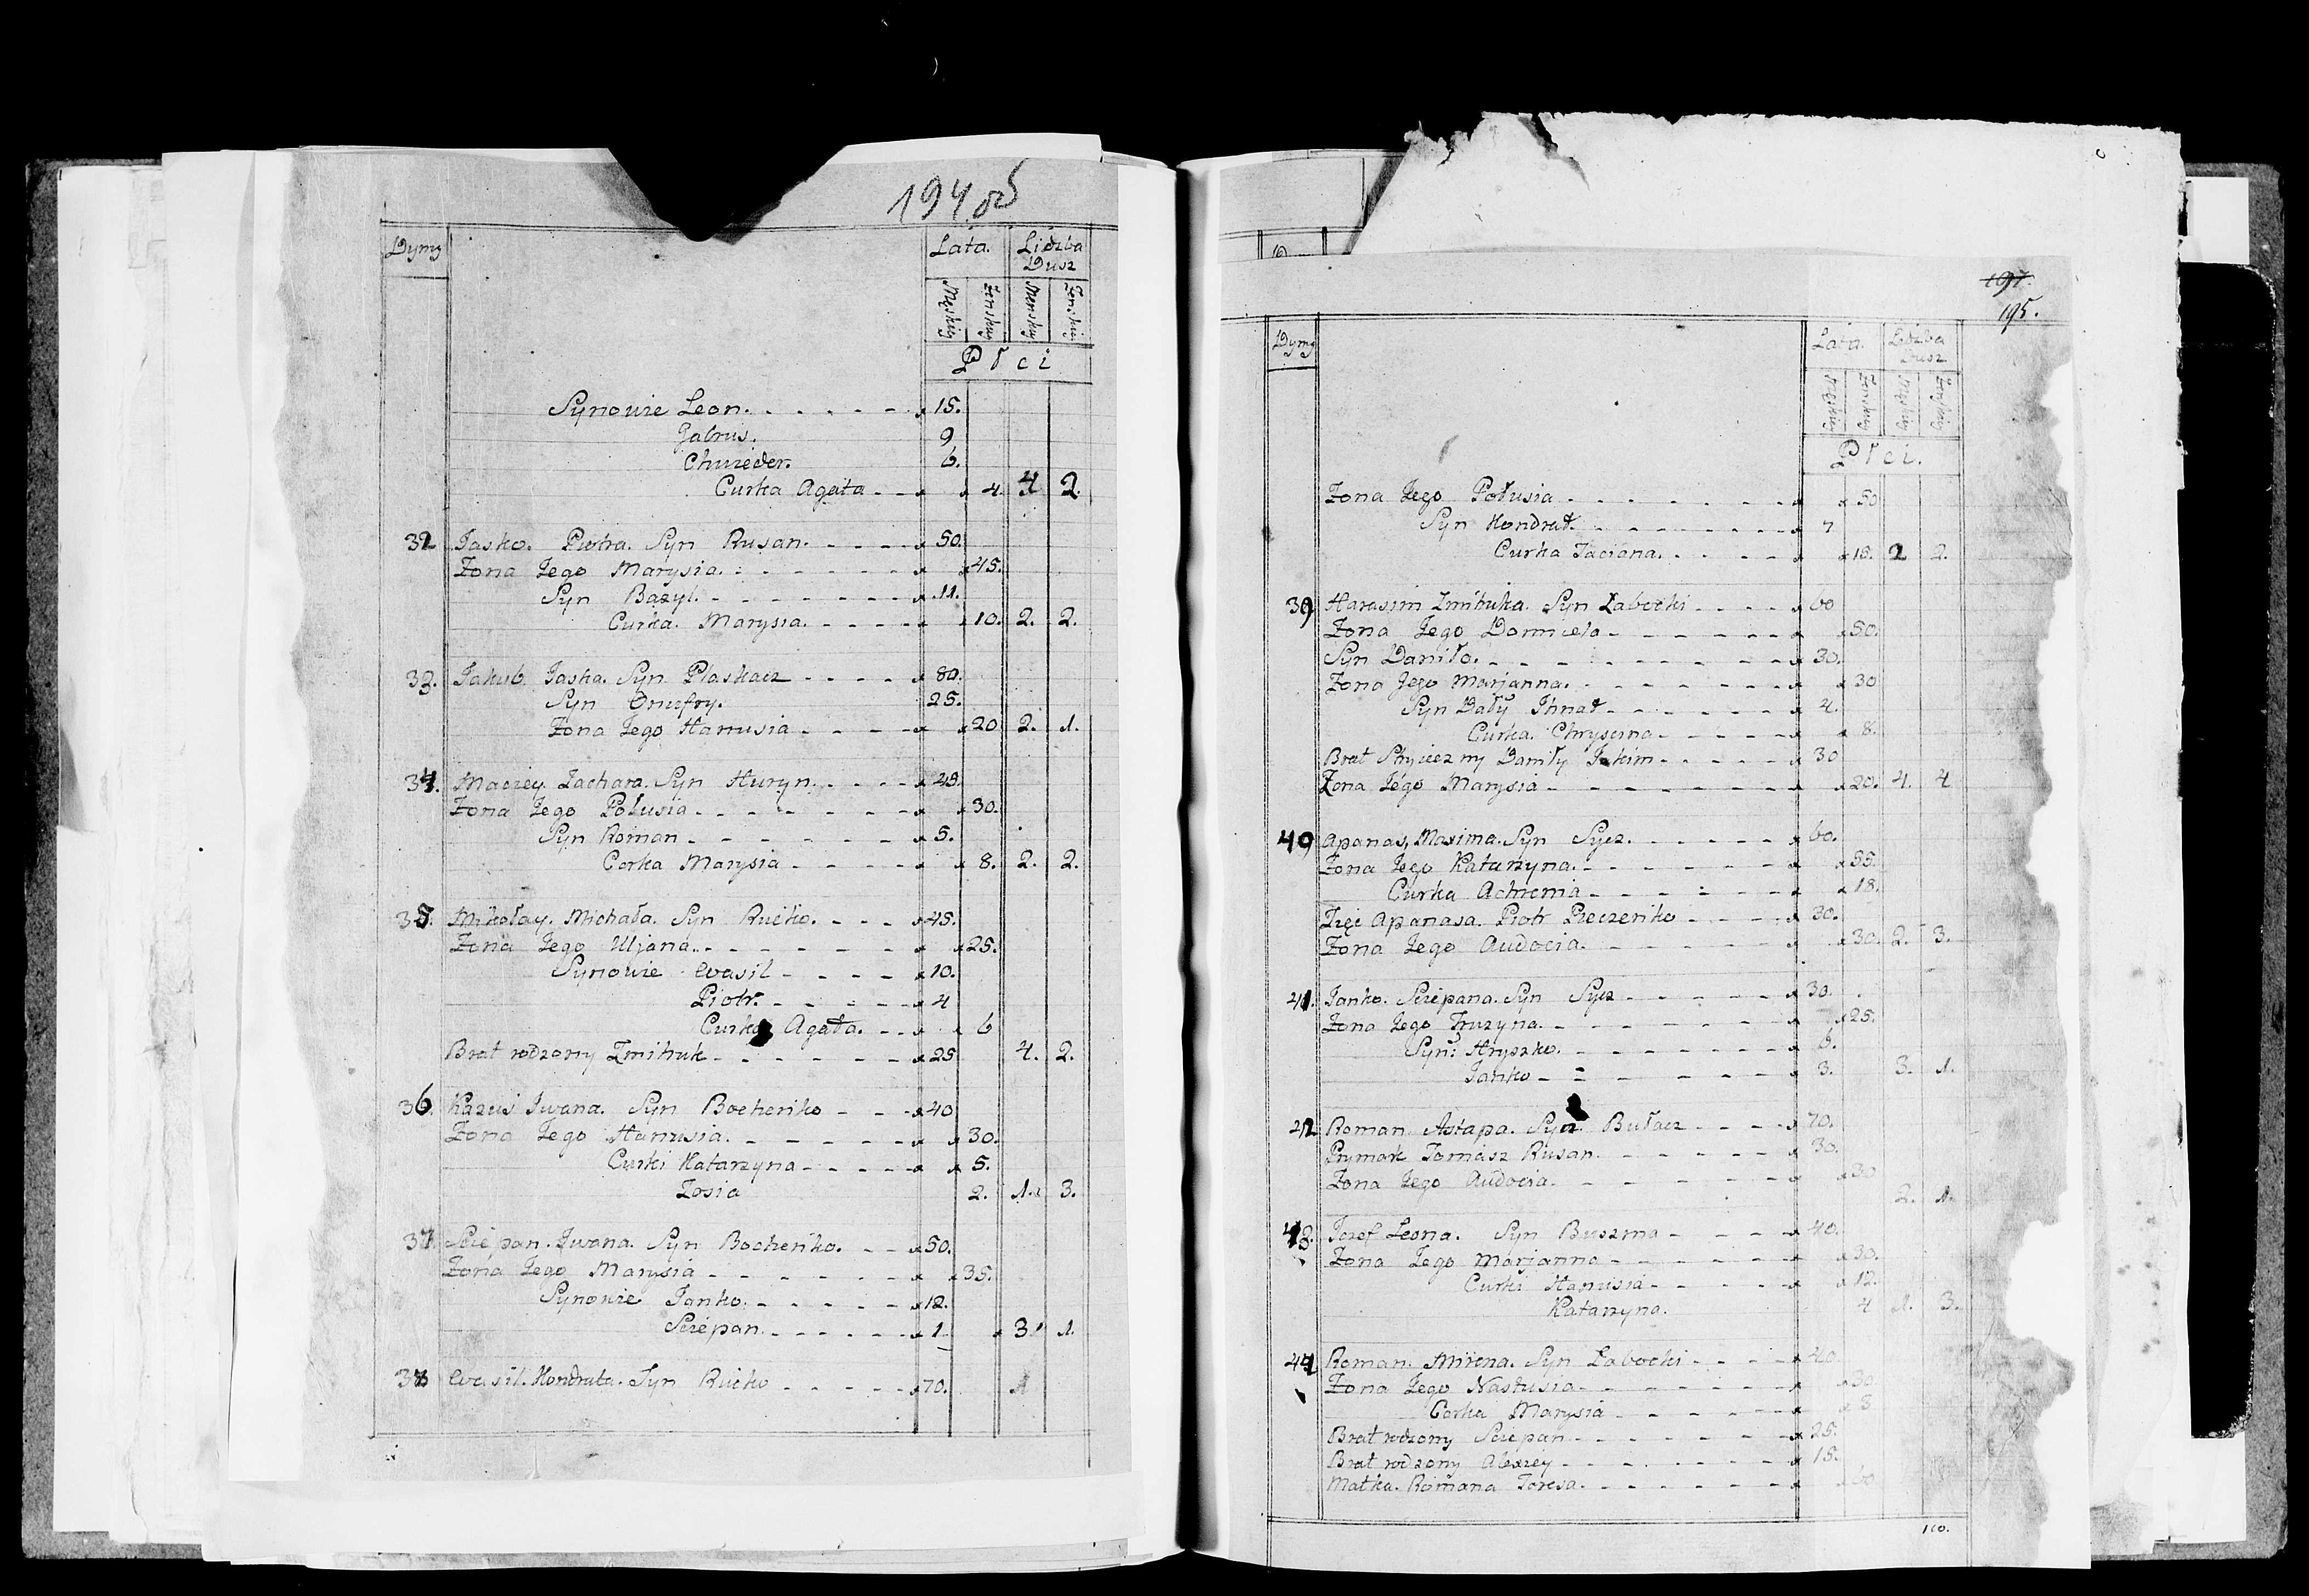 194 об
Dymy Lata. Lidzba Dusz
Męskiey Żenskiey Menskiey Żenskiey
Płci
Synowie Leon. 15.
Gabrus. 9
Chwieder. 6.
Curka Agata 4. 4 2.
32 Jasko. Piotra. Syn Rusan. 50.
Zona Jego Marysia. 45.
Syn Bazyl. 11.
Curka. Marysia. 10. 2. 2.
33. Jakub Jaska. Syn Plaskacz 80.
Syn Onufry. 25.
Zona Jego Hanusia 20 2. 1.
34. Maciey Zachara. Syn Huryn. 48.
Zona Jego Połusia 30.
Syn Roman 5.
Corka Marysia 8. 2. 2.
35. Mikołay. Michała. Syn Rućko. 45.
Zona Jego Uljana. 25.
Synowie Wasil 10.
Piotr. 4
Curka Agata. 6
Brat rodzony Zmitruk 25 4. 2.
36. Kazuś Iwana. Syn Bochenko 40
Zona Jego Hanusia. 30.
Curki Katarzyna 5.
Zosia 2. 1. 3.
37. Sciepan. Iwana. Syn Bochenko. 50.
Zona Jego Marysia 35.
Synowie Janko. 12.
Sciepan. 1 3. 1.
38 Wasil. Kondrata. Syn Rućko 70. 1
195.
Dymy Lata. Lidzba Dusz
Męskiey Żenskiey Męskiey Żenskiey
Płci.
Zona Jego Połusia 50
Syn Kondrat. 7
Curka Taciana. 15. 2 2.
39 Harasim Zmitruka. Syn Łabocki 60
Zona Jego Domicela 50.
Syn Daniło. 30.
Zona Jego Marjanna. 30
Syn Dały Ihnat 4.
Curka. Chryscina 8.
Brat Stryieczny Daniły Jakim 30
Zona Jego Marysia 20. 4. 4
40 Apanas, Maxima. Syn Sycz. 60.
Zona Jego Katarzyna. 55.
Curka Achremia 18.
Zięć Apanasa. Piotr Pieczenko 30.
Zona Jego Audocia. 30. 2. 3.
41. Janko. Sciepana. Syn Sycz 30.
Zona Jego Fruzyna. 25.
Syn: Hryszko. 6.
Janko 3. 3. 1.
42 Roman Astapa. Syn Bułacz 70.
Prymak Tomasz Rusan. 30.
Zona Jego Audocia. 30
2. 1.
43. Jozef Leona. Syn Buszma 40.
Zona Jego Marjanna 30.
Curki Hanusia 12.
Katarzyna. 4 1. 3.
44 Roman. Mirona. Syn Łabocki 40
Zona Jego Nastusia 30
Corka Marysia 3
Brat rodzony Sciepan 25.
Brat rodzony Alexiey 15.
Matka. Romana Teresa. 60
110.